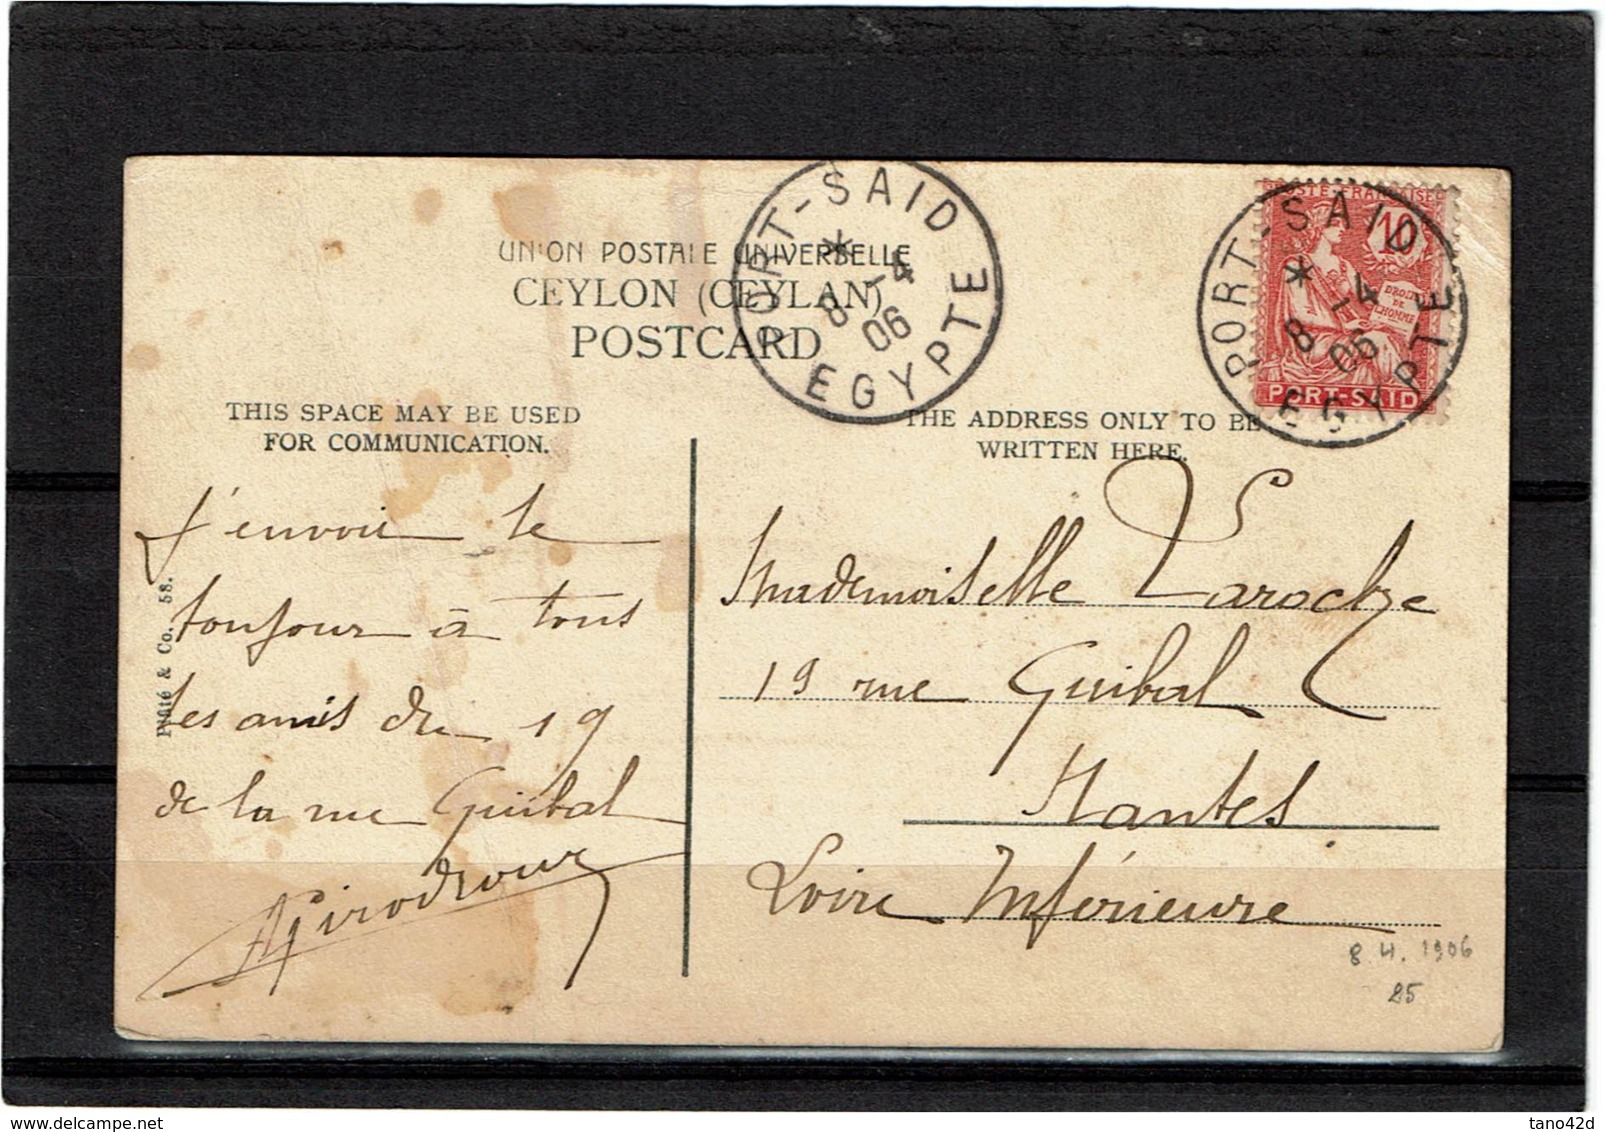 UNION POSTALE UNIVERSELLE
CEYLON (CEYLAN)
POSTCARD
PORT-SAID
*
8 -4
06
EGYPTE
POSTE FRANÇAISE
10
DROITS
DE
L'HOMME
PORT-SAID
PORT-SAID
*
8 -4
06
EGYPTE
THIS SPACE MAY BE USED
FOR COMMUNICATION.
THE ADDRESS ONLY TO BE
WRITTEN HERE.
Plâté & Co. 58.
J'envoie le
toujour à tous
les amis du 19
de la rue Guibal
Mademoiselle Laroche
19 rue Guibal
Nantes
Loire Inférieure
8 4. 1906
85
delcampe.net
tano42d